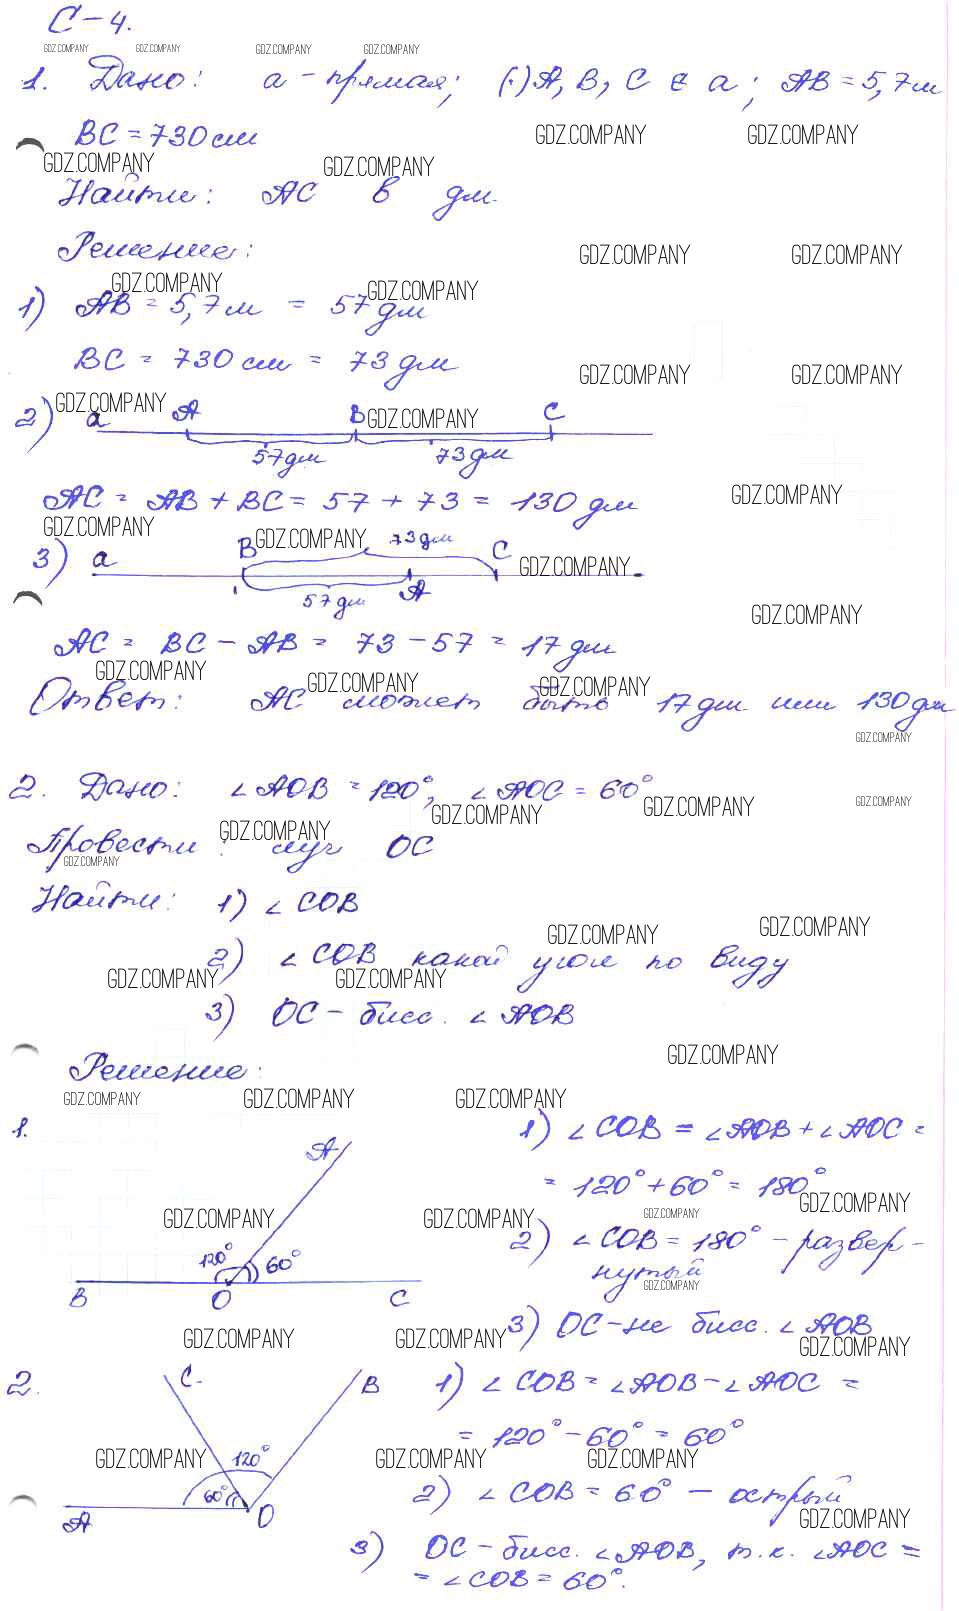 С-4.
GDZ.COMPANY GDZ.COMPANY GDZ.COMPANY GDZ.COMPANY
1. Дано: a - прямая; (·)A, B, C ∈ a; AB = 5,7м
BC = 730 см
GDZ.COMPANY GDZ.COMPANY
GDZ.COMPANY GDZ.COMPANY
Найти: AC в дм.
Решение:
GDZ.COMPANY GDZ.COMPANY
GDZ.COMPANY GDZ.COMPANY
1) AB = 5,7 м = 57 дм
BC = 730 см = 73 дм
GDZ.COMPANY GDZ.COMPANY
GDZ.COMPANY GDZ.COMPANY
2) a A B C
57 дм 73 дм
AC = AB + BC = 57 + 73 = 130 дм
GDZ.COMPANY
GDZ.COMPANY GDZ.COMPANY GDZ.COMPANY
3) a B 73 дм C
57 дм A
GDZ.COMPANY
AC = BC - AB = 73 - 57 = 17 дм
GDZ.COMPANY GDZ.COMPANY GDZ.COMPANY
Ответ: AC может быть 17 дм или 130 дм
GDZ.COMPANY
2. Дано: ∠AOB = 120°, ∠AOC = 60°
GDZ.COMPANY GDZ.COMPANY GDZ.COMPANY GDZ.COMPANY
Провести: луч OC
GDZ.COMPANY
Найти: 1) ∠COB
GDZ.COMPANY GDZ.COMPANY
2) ∠COB какой угол по виду
GDZ.COMPANY GDZ.COMPANY
3) OC - бисс. ∠AOB
GDZ.COMPANY
Решение:
GDZ.COMPANY GDZ.COMPANY GDZ.COMPANY
1.
A
120° 60°
B O C
GDZ.COMPANY GDZ.COMPANY
1) ∠COB = ∠AOB + ∠AOC =
= 120° + 60° = 180°
GDZ.COMPANY
GDZ.COMPANY
2) ∠COB = 180° - развер-
нутый
GDZ.COMPANY
3) OC - не бисс. ∠AOB
GDZ.COMPANY GDZ.COMPANY GDZ.COMPANY
2.
C. B
120°
60°
A O
1) ∠COB = ∠AOB - ∠AOC =
= 120° - 60° = 60°
GDZ.COMPANY GDZ.COMPANY GDZ.COMPANY
2) ∠COB = 60° - острый
GDZ.COMPANY
3) OC - бисс. ∠AOB, т.к. ∠AOC =
= ∠COB = 60°.